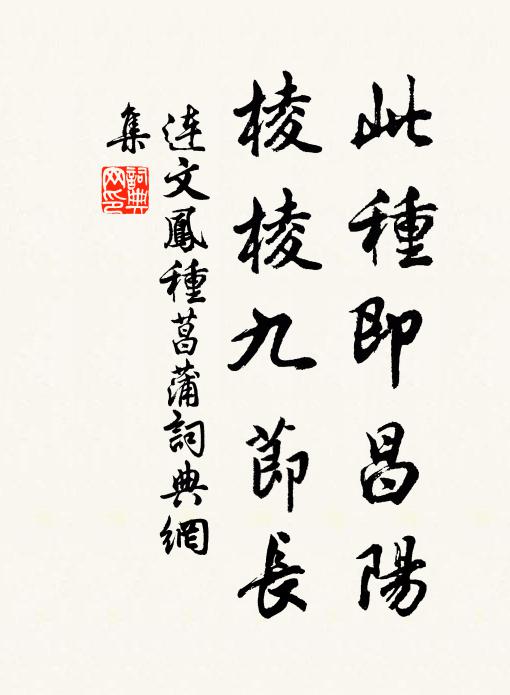 此種即昌陽
棱棱九節長
連文鳳種菖蒲詞典網
集
詞典
网印